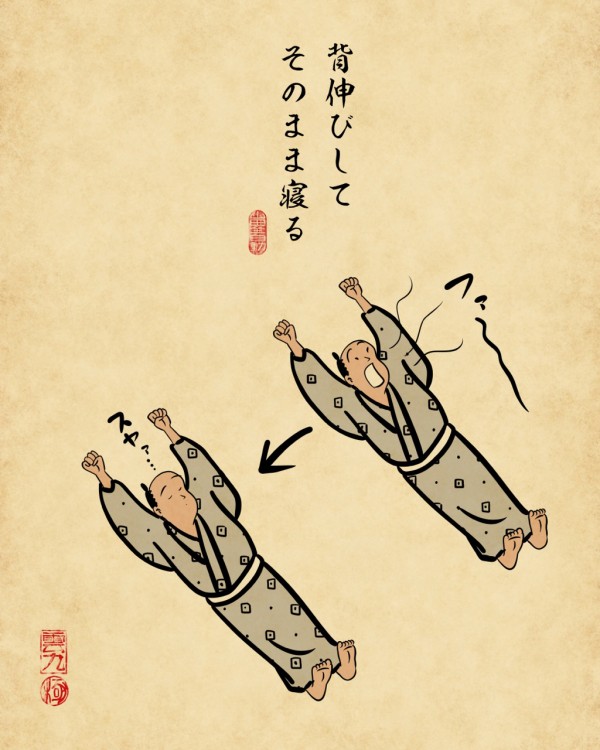 背伸びして
そのまま寝る
ファ〜
スヤァ…